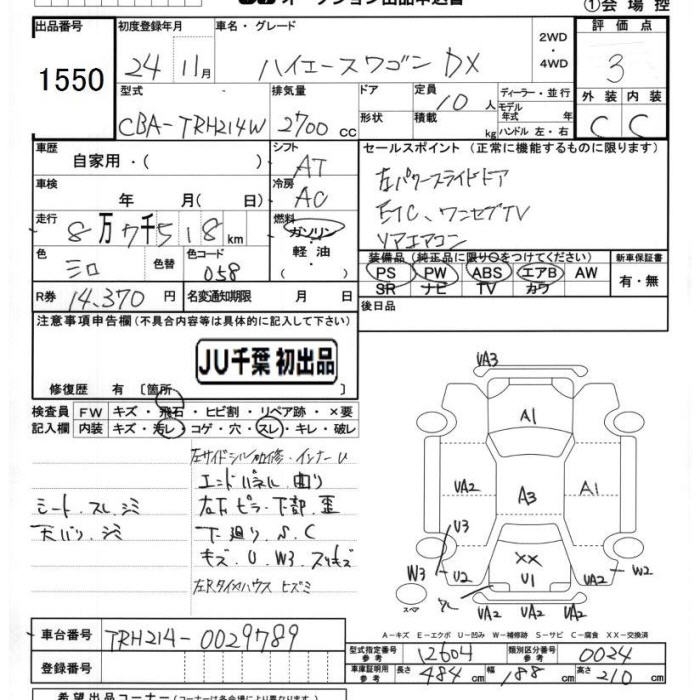 オークション出品申込書
①会場控
出品番号 1550
初度登録年月 24 11月
車名・グレード ハイエースワゴン DX
2WD・4WD
評価点 3
型式 CBA-TRH214W
排気量 2700 cc
ドア 形状
定員 10人
積載 kg
ディーラー・並行
モデル年式 年
ハンドル 左・右
外装 C 内装 C
車歴 自家用・( )
シフト AT
セールスポイント(正常に機能するものに限ります)
左パワースライドドア
ETC、ワンセグTV
リアエアコン
車検 年 月(日)
冷房 AC
走行 8万7千518km
燃料 ガソリン・軽油・( )
色 シロ 色替
色コード 058
装備品(純正品に限り○をつけてください)
PS PW ABS エアB AW
SR ナビ TV カワ
新車保証書 有・無
R券 14,370円
名変通知期限 月 日
後日品
注意事項申告欄(不具合内容等は具体的に記入して下さい)
JU千葉 初出品
修復歴 有〔箇所 〕
検査員記入欄
FW キズ・飛石・ヒビ割・リペア跡・×要
内装 キズ・汚レ・コゲ・穴・スレ・キレ・破レ
左サイドシル加修・インナーU
エンドパネル 曲り
シート、スレ、シミ
左右下ピラー下部 歪
天バリ、シミ
下廻り S、C
キズ、U、W3、スリキズ
左Rタイヤハウス ヒズミ
UA3
A1
UA2 A3 A1
U3
XX
W3 U2 U1 UA2 W2
スペア
UA2 UA2 UA2
A-キズ E-エクボ U-凹み W-補修跡 S-サビ C-腐食 XX-交換済
車台番号 TRH214-0029789
登録番号
型式指定番号 参考 12604
類別区分番号 参考 0024
車庫証明用 参考 長さ 484cm 幅 188cm 高さ 210cm
希望出品コーナー(コーナーは各会場により異なります)